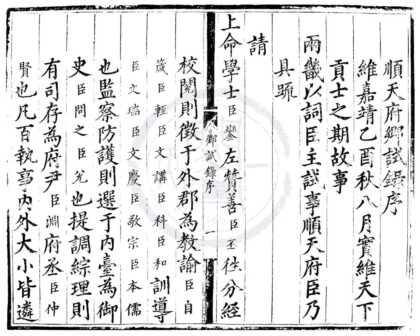 順天府鄉試錄序
維嘉靖乙酉秋八月實維天下
貢士之期故事
兩畿以詞臣主試事順天府臣乃
具䟽
請
上命學士臣鑾左贊善臣丕徃分經
鄉試錄序 一
校閱則徵于外郡為教諭臣自
箴臣輕臣文講臣科臣和訓導
臣文瑞臣文慶臣敬宗臣本儒
也監察防護則選于內臺為御
史臣問之臣光也提調綜理則
有司存為府尹臣淵府丞臣仲
賢也凡百執事內外大小皆遴